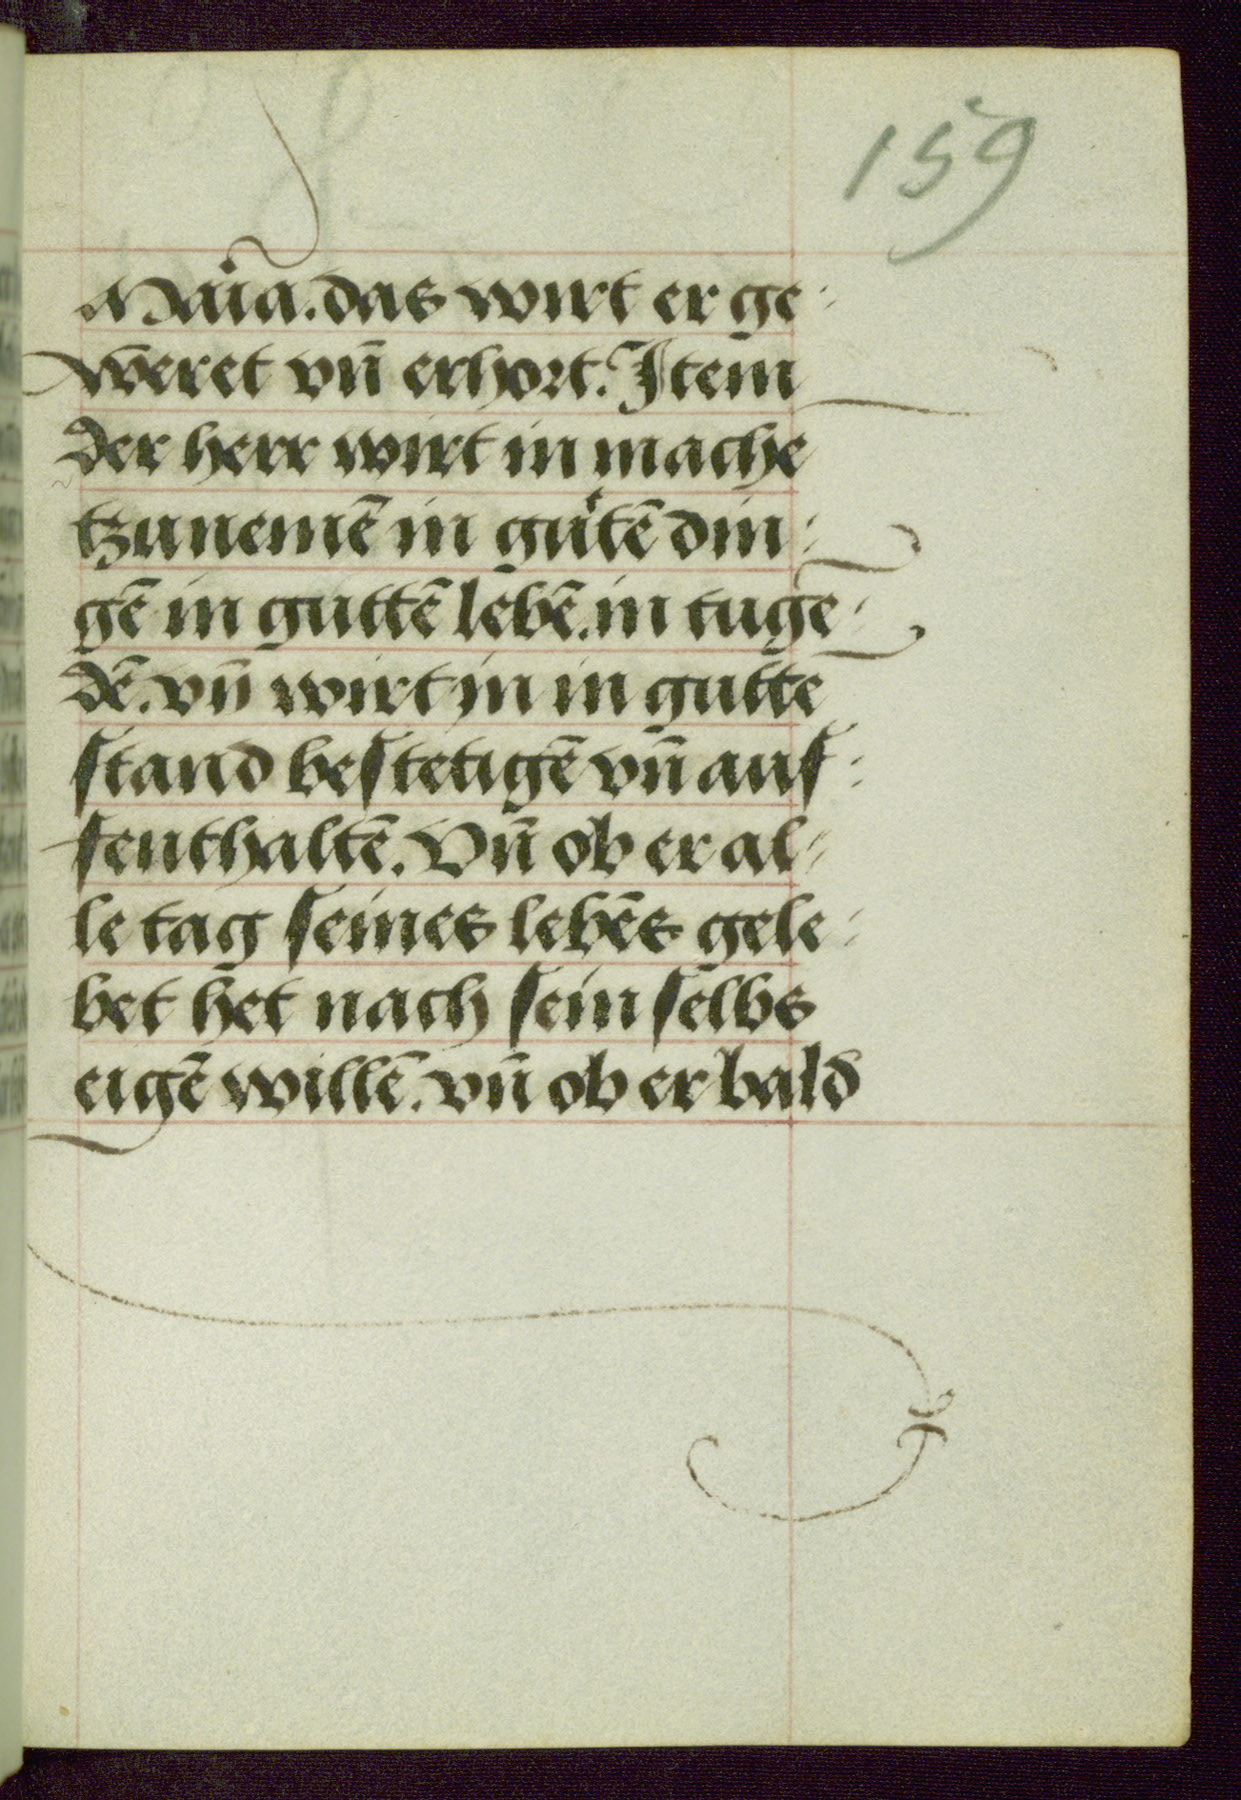 159
Maria. das wirt er ge-
weret vn̄ erhort. Item
der herr wirt in mache
tzunemē in gůtē din-
gē in guttē lebē. in tuge-
dē. vn̄ wirt in in gutte
ſtand beſtetigē vn̄ auſ-
ſenthaltē. Vn̄ ob er al-
le tag ſeines lebēs gele-
bet het nach ſein ſelbs
eigē willē. vn̄ ob er bald